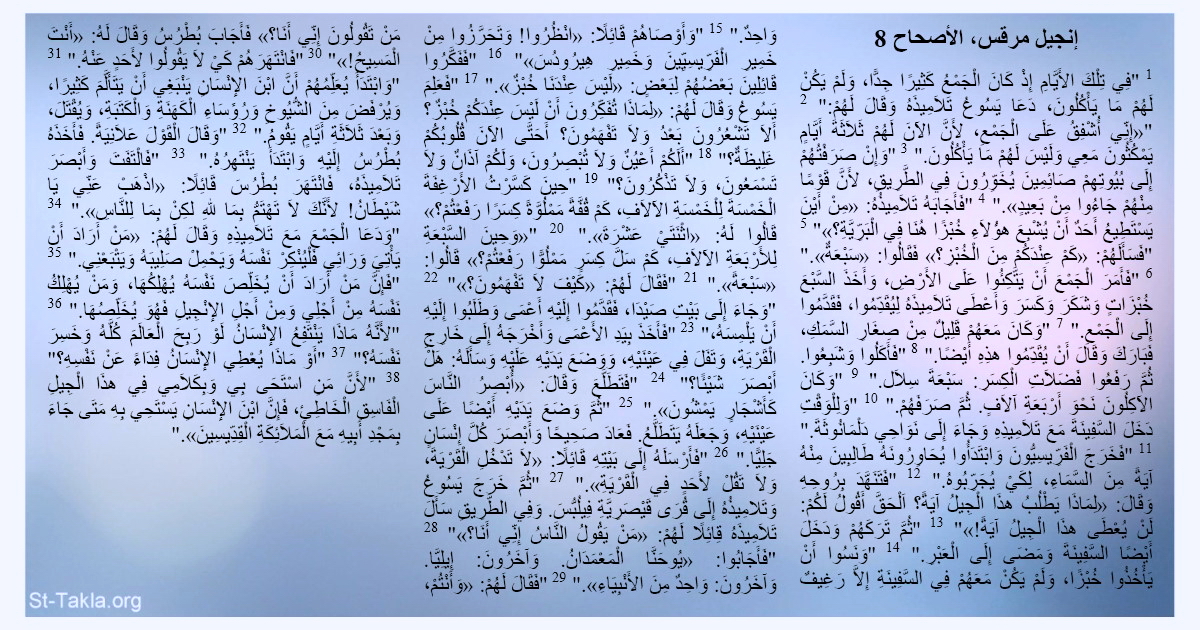 إنجيل مرقس، الأصحاح 8
1 "فِي تِلْكَ الأَيَّامِ إِذْ كَانَ الْجَمْعُ كَثِيرًا جِدًّا، وَلَمْ يَكُنْ
لَهُمْ مَا يَأْكُلُونَ، دَعَا يَسُوعُ تَلاَمِيذَهُ وَقَالَ لَهُمْ:" 2
"«إِنِّي أُشْفِقُ عَلَى الْجَمْعِ، لأَنَّ الآنَ لَهُمْ ثَلاَثَةَ أَيَّامٍ
يَمْكُثُونَ مَعِي وَلَيْسَ لَهُمْ مَا يَأْكُلُونَ." 3 "وَإِنْ صَرَفْتُهُمْ
إِلَى بُيُوتِهِمْ صَائِمِينَ يُخَوِّرُونَ فِي الطَّرِيقِ، لأَنَّ قَوْمًا
مِنْهُمْ جَاءُوا مِنْ بَعِيدٍ»." 4 "فَأَجَابَهُ تَلاَمِيذُهُ: «مِنْ أَيْنَ
يَسْتَطِيعُ أَحَدٌ أَنْ يُشْبِعَ هؤُلاَءِ خُبْزًا هُنَا فِي الْبَرِّيَّةِ؟»" 5
"فَسَأَلَهُمْ: «كَمْ عِنْدَكُمْ مِنَ الْخُبْزِ؟» فَقَالُوا: «سَبْعَةٌ»."
6 "فَأَمَرَ الْجَمْعَ أَنْ يَتَّكِئُوا عَلَى الأَرْضِ، وَأَخَذَ السَّبْعَ
خُبْزَاتٍ وَشَكَرَ وَكَسَرَ وَأَعْطَى تَلاَمِيذَهُ لِيُقَدِّمُوا، فَقَدَّمُوا
إِلَى الْجَمْعِ." 7 "وَكَانَ مَعَهُمْ قَلِيلٌ مِنْ صِغَارِ السَّمَكِ،
فَبَارَكَ وَقَالَ أَنْ يُقَدِّمُوا هذِهِ أَيْضًا." 8 "فَأَكَلُوا وَشَبِعُوا.
ثُمَّ رَفَعُوا فَضَلاَتِ الْكِسَرِ: سَبْعَةَ سِلاَل." 9 "وَكَانَ
الآكِلُونَ نَحْوَ أَرْبَعَةِ آلاَفٍ. ثُمَّ صَرَفَهُمْ." 10 "وَلِلْوَقْتِ
دَخَلَ السَّفِينَةَ مَعَ تَلاَمِيذِهِ وَجَاءَ إِلَى نَوَاحِي دَلْمَانُوثَةَ."
11 "فَخَرَجَ الْفَرِّيسِيُّونَ وَابْتَدَأُوا يُحَاوِرُونَهُ طَالِبِينَ مِنْهُ
آيَةً مِنَ السَّمَاءِ، لِكَيْ يُجَرِّبُوهُ." 12 "فَتَنَهَّدَ بِرُوحِهِ
وَقَالَ: «لِمَاذَا يَطْلُبُ هذَا الْجِيلُ آيَةً؟ اَلْحَقَّ أَقُولُ لَكُمْ:
لَنْ يُعْطَى هذَا الْجِيلُ آيَةً!»" 13 "ثُمَّ تَرَكَهُمْ وَدَخَلَ
أَيْضًا السَّفِينَةَ وَمَضَى إِلَى الْعَبْرِ." 14 "وَنَسُوا أَنْ
يَأْخُذُوا خُبْزًا، وَلَمْ يَكُنْ مَعَهُمْ فِي السَّفِينَةِ إِلاَّ رَغِيفٌ
وَاحِدٌ." 15 "وَأَوْصَاهُمْ قَائِلًا: «انْظُرُوا! وَتَحَرَّزُوا مِنْ
خَمِيرِ الْفَرِّيسِيِّينَ وَخَمِيرِ هِيرُودُسَ»." 16 "فَفَكَّرُوا
قَائِلِينَ بَعْضُهُمْ لِبَعْضٍ: «لَيْسَ عِنْدَنَا خُبْزٌ»." 17 "فَعَلِمَ
يَسُوعُ وَقَالَ لَهُمْ: «لِمَاذَا تُفَكِّرُونَ أَنْ لَيْسَ عِنْدَكُمْ خُبْزٌ؟
أَلاَ تَشْعُرُونَ بَعْدُ وَلاَ تَفْهَمُونَ؟ أَحَتَّى الآنَ قُلُوبُكُمْ
غَلِيظَةٌ؟" 18 "أَلَكُمْ أَعْيُنٌ وَلاَ تُبْصِرُونَ، وَلَكُمْ آذَانٌ وَلاَ
تَسْمَعُونَ، وَلاَ تَذْكُرُونَ؟" 19 "حِينَ كَسَّرْتُ الأَرْغِفَةَ
الْخَمْسَةَ لِلْخَمْسَةِ الآلاَفِ، كَمْ قُفَّةً مَمْلُوَّةً كِسَرًا رَفَعْتُمْ؟»
قَالُوا لَهُ: «اثْنَتَيْ عَشْرَةَ»." 20 "«وَحِينَ السَّبْعَةِ
لِلأَرْبَعَةِ الآلاَفِ، كَمْ سَلَّ كِسَرٍ مَمْلُوًّا رَفَعْتُمْ؟» قَالُوا:
«سَبْعَةً»." 21 "فَقَالَ لَهُمْ: «كَيْفَ لاَ تَفْهَمُونَ؟»" 22
"وَجَاءَ إِلَى بَيْتِ صَيْدَا، فَقَدَّمُوا إِلَيْهِ أَعْمَى وَطَلَبُوا إِلَيْهِ
أَنْ يَلْمِسَهُ،" 23 "فَأَخَذَ بِيَدِ الأَعْمَى وَأَخْرَجَهُ إِلَى خَارِجِ
الْقَرْيَةِ، وَتَفَلَ فِي عَيْنَيْهِ، وَوَضَعَ يَدَيْهِ عَلَيْهِ وَسَأَلَهُ: هَلْ
أَبْصَرَ شَيْئًا؟" 24 "فَتَطَلَّعَ وَقَالَ: «أُبْصِرُ النَّاسَ
كَأَشْجَارٍ يَمْشُونَ»." 25 "ثُمَّ وَضَعَ يَدَيْهِ أَيْضًا عَلَى
عَيْنَيْهِ، وَجَعَلَهُ يَتَطَلَّعُ. فَعَادَ صَحِيحًا وَأَبْصَرَ كُلَّ إِنْسَانٍ
جَلِيًّا." 26 "فَأَرْسَلَهُ إِلَى بَيْتِهِ قَائِلًا: «لاَ تَدْخُلِ الْقَرْيَةَ،
وَلاَ تَقُلْ لأَحَدٍ فِي الْقَرْيَةِ»." 27 "ثُمَّ خَرَجَ يَسُوعُ
وَتَلاَمِيذُهُ إِلَى قُرَى قَيْصَرِيَّةِ فِيلُبُّسَ. وَفِي الطَّرِيقِ سَأَلَ
تَلاَمِيذَهُ قِائِلًا لَهُمْ: «مَنْ يَقُولُ النَّاسُ إِنِّي أَنَا؟»" 28
"فَأَجَابُوا: «يُوحَنَّا الْمَعْمَدَانُ. وَآخَرُونَ: إِيلِيَّا.
وَآخَرُونَ: وَاحِدٌ مِنَ الأَنْبِيَاءِ»." 29 "فَقَالَ لَهُمْ: «وَأَنْتُمْ،
مَنْ تَقُولُونَ إِنِّي أَنَا؟» فَأَجَابَ بُطْرُسُ وَقَالَ لَهُ: «أَنْتَ
الْمَسِيحُ!»" 30 "فَانْتَهَرَهُمْ كَيْ لاَ يَقُولُوا لأَحَدٍ عَنْهُ." 31
"وَابْتَدَأَ يُعَلِّمُهُمْ أَنَّ ابْنَ الإِنْسَانِ يَنْبَغِي أَنْ يَتَأَلَّمَ كَثِيرًا،
وَيُرْفَضَ مِنَ الشُّيُوخِ وَرُؤَسَاءِ الْكَهَنَةِ وَالْكَتَبَةِ، وَيُقْتَلَ،
وَبَعْدَ ثَلاَثَةِ أَيَّامٍ يَقُومُ." 32 "وَقَالَ الْقَوْلَ عَلاَنِيَةً. فَأَخَذَهُ
بُطْرُسُ إِلَيْهِ وَابْتَدَأَ يَنْتَهِرُهُ." 33 "فَالْتَفَتَ وَأَبْصَرَ
تَلاَمِيذَهُ، فَانْتَهَرَ بُطْرُسَ قَائِلًا: «اذْهَبْ عَنِّي يَا
شَيْطَانُ! لأَنَّكَ لاَ تَهْتَمُّ بِمَا للهِ لكِنْ بِمَا لِلنَّاسِ»." 34
"وَدَعَا الْجَمْعَ مَعَ تَلاَمِيذِهِ وَقَالَ لَهُمْ: «مَنْ أَرَادَ أَنْ
يَأْتِيَ وَرَائِي فَلْيُنْكِرْ نَفْسَهُ وَيَحْمِلْ صَلِيبَهُ وَيَتْبَعْنِي." 35
"فَإِنَّ مَنْ أَرَادَ أَنْ يُخَلِّصَ نَفْسَهُ يُهْلِكُهَا، وَمَنْ يُهْلِكُ
نَفْسَهُ مِنْ أَجْلِي وَمِنْ أَجْلِ الإِنْجِيلِ فَهُوَ يُخَلِّصُهَا." 36
"لأَنَّهُ مَاذَا يَنْتَفِعُ الإِنْسَانُ لَوْ رَبِحَ الْعَالَمَ كُلَّهُ وَخَسِرَ
نَفْسَهُ؟" 37 "أَوْ مَاذَا يُعْطِي الإِنْسَانُ فِدَاءً عَنْ نَفْسِهِ؟"
38 "لأَنَّ مَنِ اسْتَحَى بِي وَبِكَلاَمِي فِي هذَا الْجِيلِ
الْفَاسِقِ الْخَاطِئِ، فَإِنَّ ابْنَ الإِنْسَانِ يَسْتَحِي بِهِ مَتَى جَاءَ
بِمَجْدِ أَبِيهِ مَعَ الْمَلاَئِكَةِ الْقِدِّيسِينَ»."
St-Takla.org